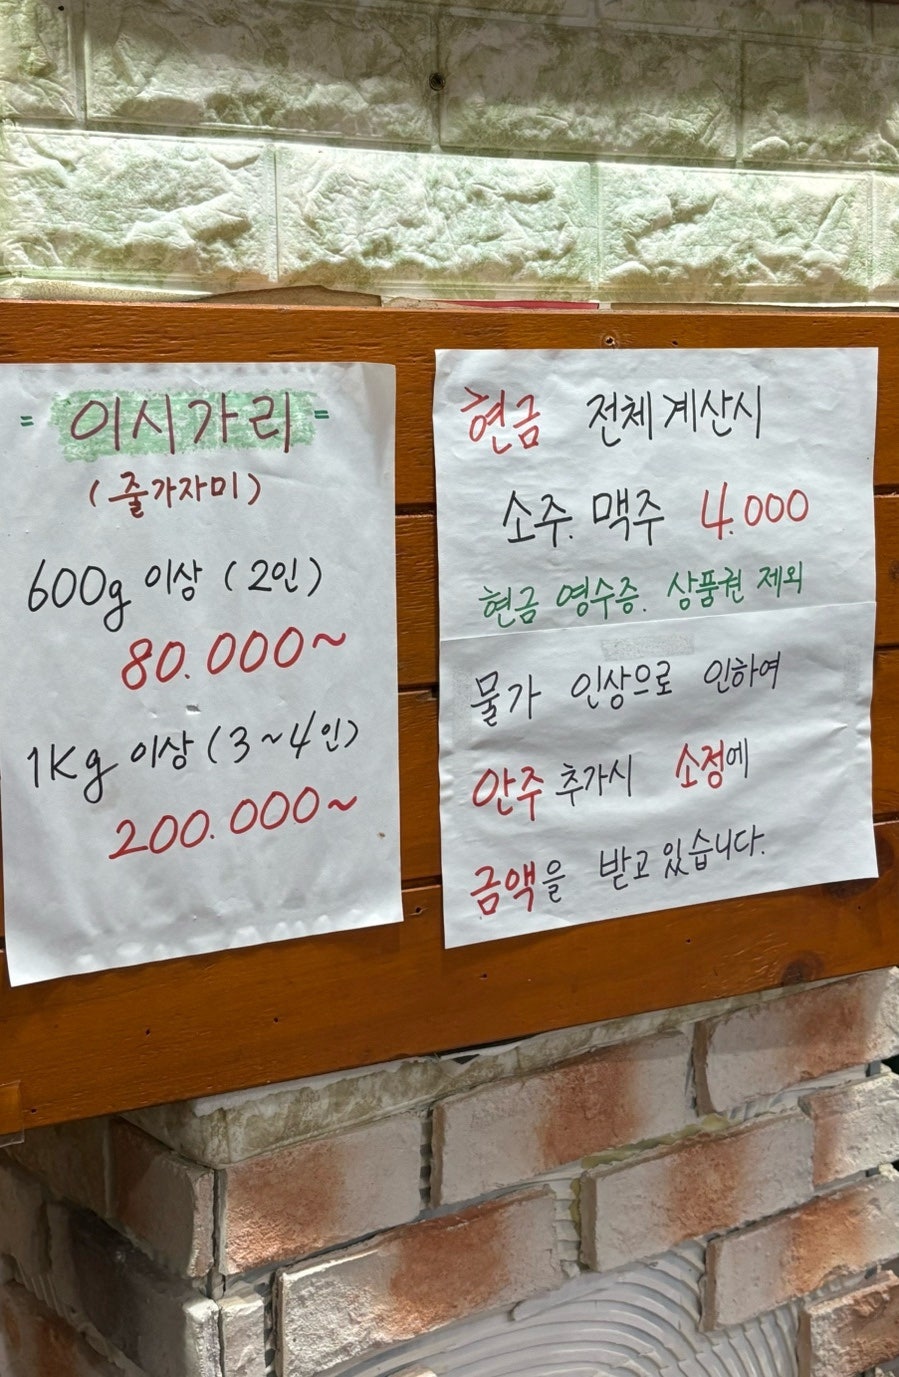 = 이시가리 =
(줄가자미)
600g 이상 (2인)
80.000~
1Kg 이상 (3~4인)
200.000~
현금 전체 계산시
소주. 맥주 4.000
현금 영수증. 상품권 제외
물가 인상으로 인하여
안주 추가시 소정에
금액을 받고 있습니다.